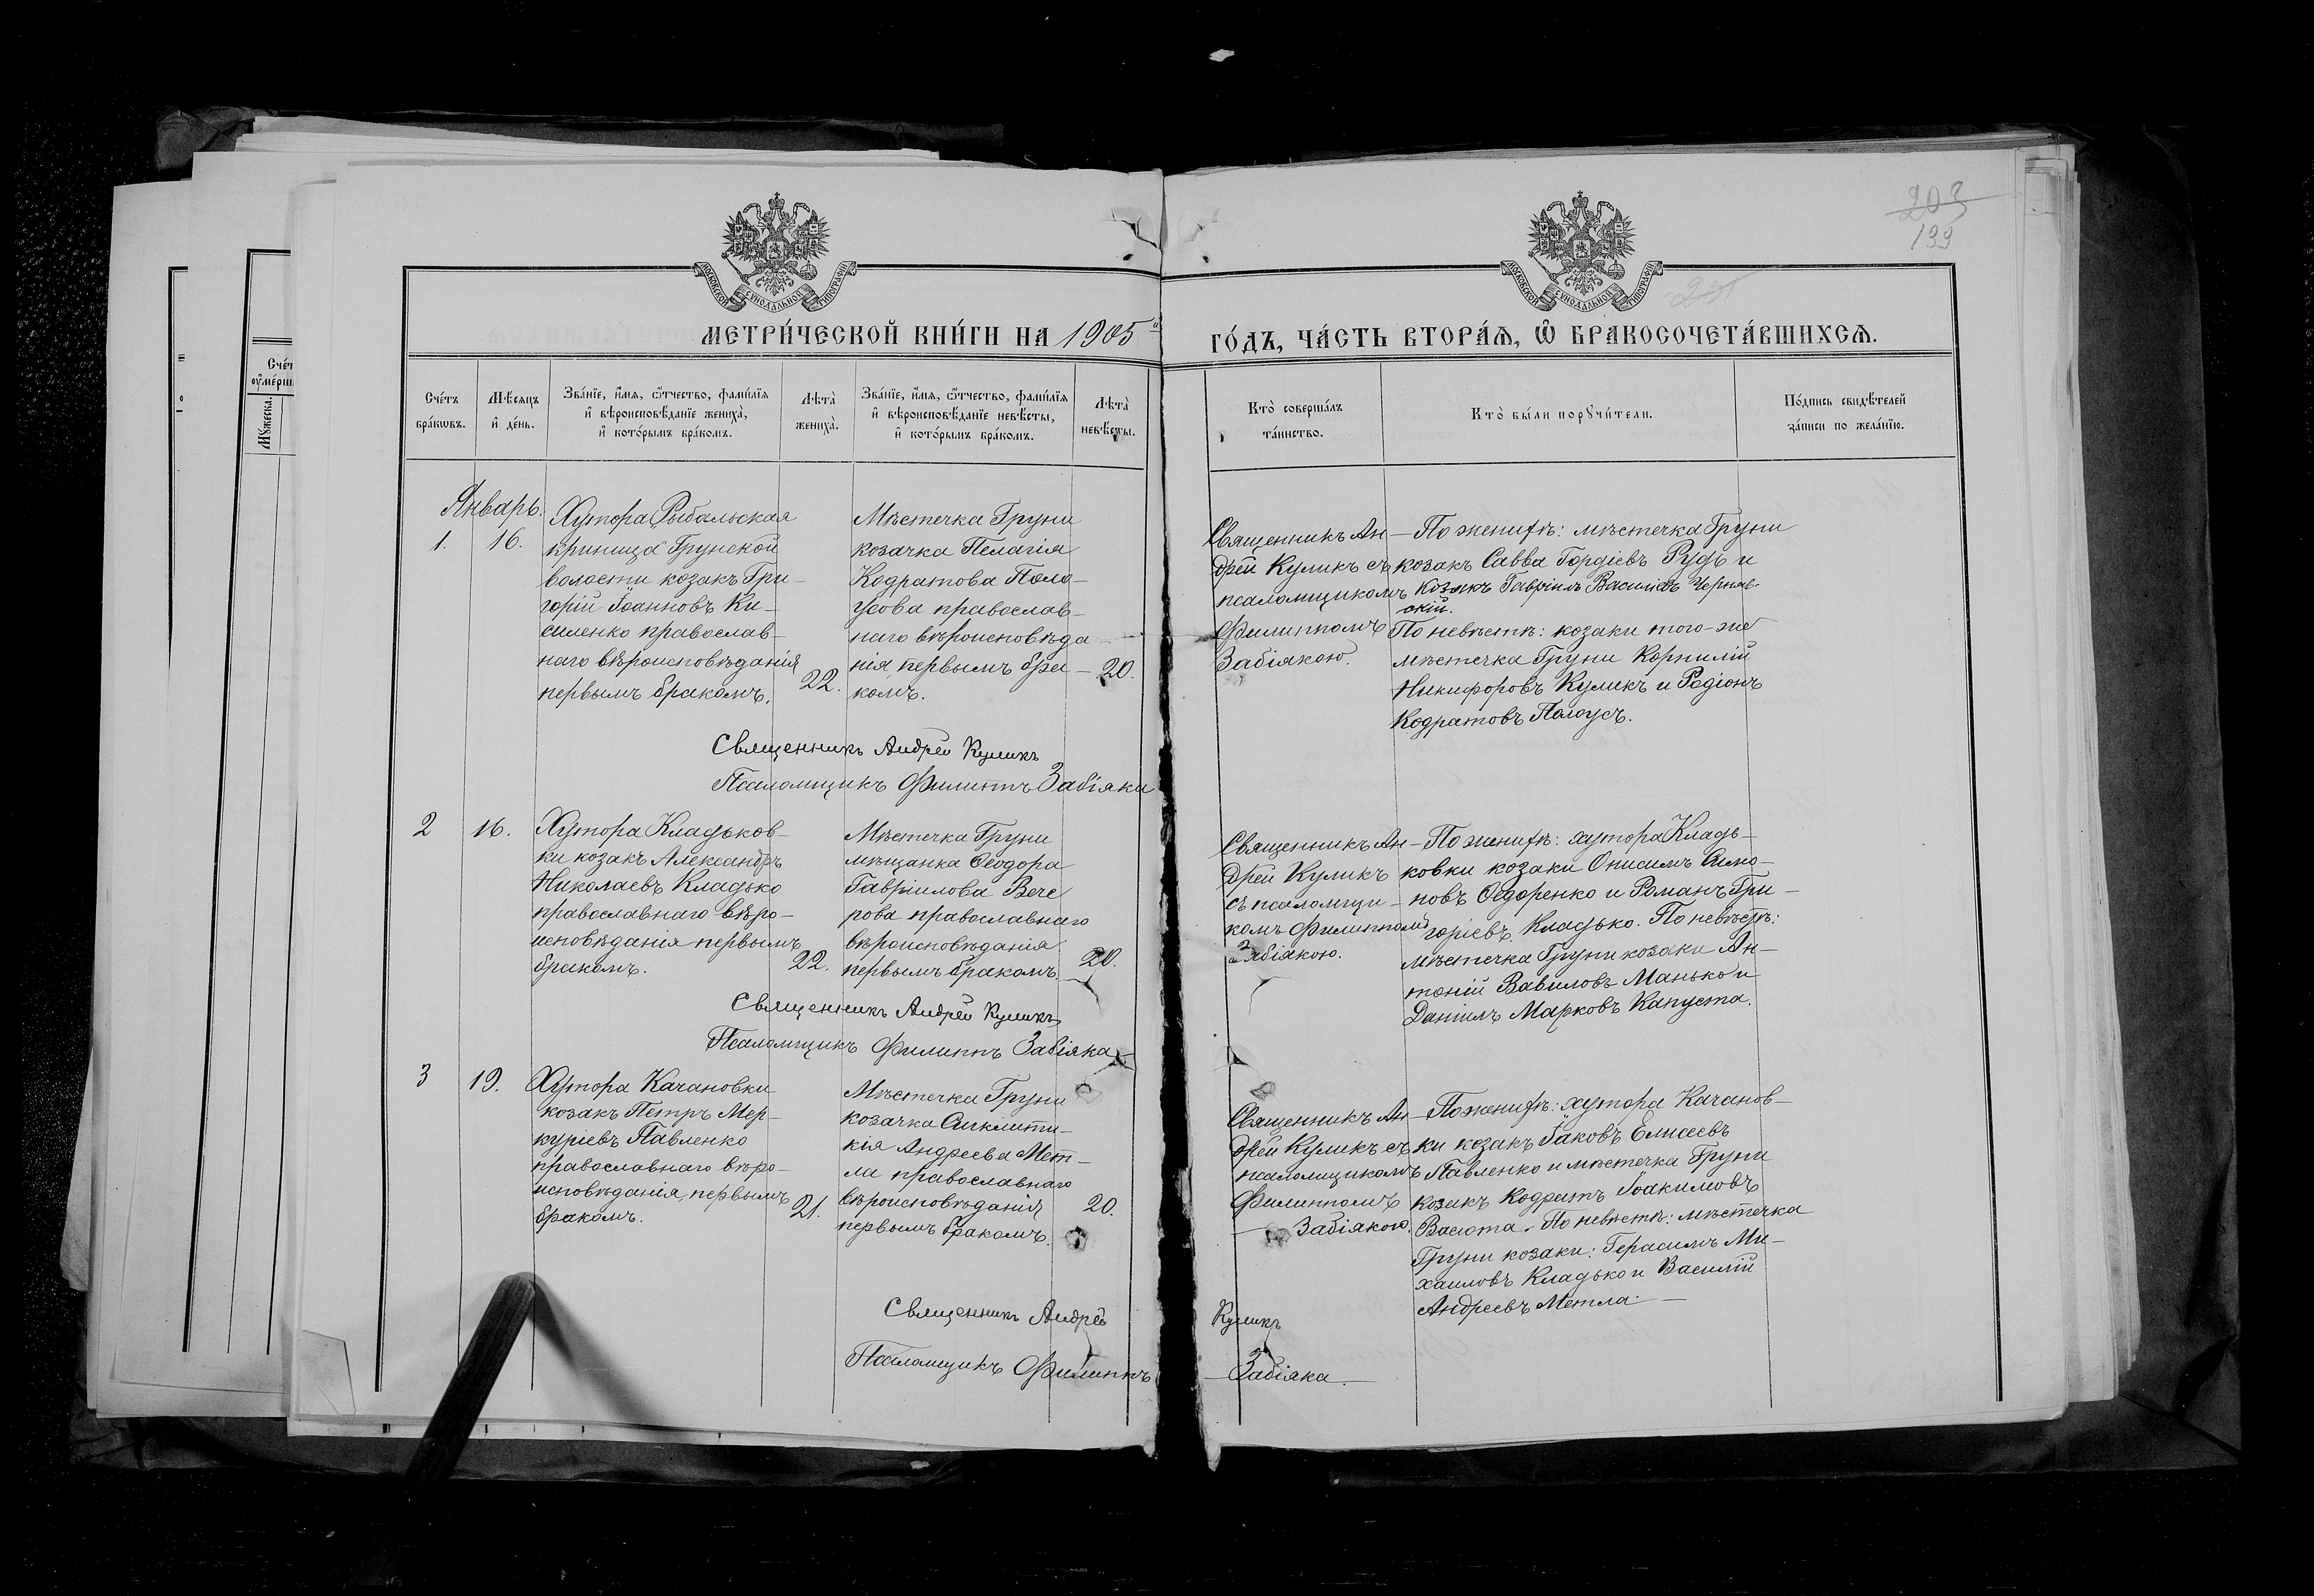 203
199
МОСКОВСКОЙ СУНОДАЛЬНОЙ ТИПОГРАФІИ
МОСКОВСКОЙ СУНОДАЛЬНОЙ ТИПОГРАФІИ
МЕТРИ́ЧЕСКОЙ КНИ́ГИ НА 1905й ГО́ДЪ, ЧА́СТЬ ВТОРА́Ѧ, Ѽ БРАКОСОЧЕТА́ВШИХСѦ.
Сче́тъ бра́кѡвъ.
Мѣ́сяцъ и҆ де́нь.
Зва́нїе, и҆́мя, ѻ҆́тчество, фами́лїя
и҆ вѣроисповѣ́данїе жениха̀,
и҆ кото́рымъ бра́комъ.
Лѣ́та̀ жениха̀.
Зва́нїе, и҆́мя, ѻ҆́тчество, фами́лїя
и҆ вѣроисповѣ́данїе невѣ́сты,
и҆ кото́рымъ бра́комъ.
Лѣ́та̀ невѣ́сты.
Кто̀ соверша́лъ
та́инство.
Кто̀ бы́ли порꙋчи́тели.
По́дпись свидѣ́телей
за́писи по жела́нїю.
Мꙋ́жеска.
Январь.
1. 16.
Хутора Рыбальская
криница Грунской
волости козакъ Гри-
горій Іоанновъ Ки-
силенко православ-
наго вѣроисповѣданія
первымъ бракомъ.
22.
Мѣстечка Груни
козачка Пелагія
Кодратова Поло-
усова православ-
наго вѣроисповѣда-
нія первымъ бра-
комъ.
20.
Священникъ Ан-
дрей Куликъ съ
псаломщикомъ
Филиппомъ
Забіякою.
По женихѣ: мѣстечка Груни
козакъ Савва Гордіевъ Рудь и
козакъ Гавріилъ Василіевъ Черняв-
скій.
По невѣстѣ: козаки того-же
мѣстечка Груни Корнилій
Никифоровъ Куликъ и Родіонъ
Кодратовъ Полоусъ.
Священникъ Андрей Куликъ
Псаломщикъ Филиппъ Забіяка
2 16.
Хутора Кладьков-
ки козакъ Александръ
Николаевъ Кладько
православнаго вѣро-
исповѣданія первымъ
бракомъ.
22.
Мѣстечка Груни
мѣщанка Ѳеодора
Гавріилова Вече
рова православнаго
вѣроисповѣданія
первымъ бракомъ.
20.
Священникъ Ан-
дрей Куликъ
съ псаломщи-
комъ Филиппомъ
Забіякою.
По женихѣ: хутора Кладь-
ковки козаки Онисимъ Симо-
новъ Ѳедоренко и Романъ Гри-
горіевъ Кладько. По невѣстѣ:
мѣстечка Груни козаки Ан-
тоній Вавиловъ Манько и
Даніилъ Марковъ Капуста.
Священникъ Андрей Куликъ
Псаломщикъ Филиппъ Забіяка
3 19.
Хутора Качановки
козакъ Петръ Мер-
куріевъ Павленко
православнаго вѣро-
исповѣданія, первымъ
бракомъ.
21.
Мѣстечка Груни
козачка Сиклити-
кія Андреева Мет-
ла православнаго
вѣроисповѣданія
первымъ бракомъ.
20.
Священникъ Ан-
дрей Куликъ съ
псаломщикомъ
Филиппомъ
Забіякою.
По женихѣ: хутора Качанов-
ки козакъ Іаковъ Елисеевъ
Павленко и мѣстечка Груни
козакъ Кодратъ Іоакимовъ
Васюта. По невѣстѣ: мѣстечка
Груни козаки: Герасимъ Ми-
хаиловъ Кладько и Василій
Андреевъ Метла.
Священникъ Андрей Куликъ
Псаломщикъ Филиппъ Забіяка.